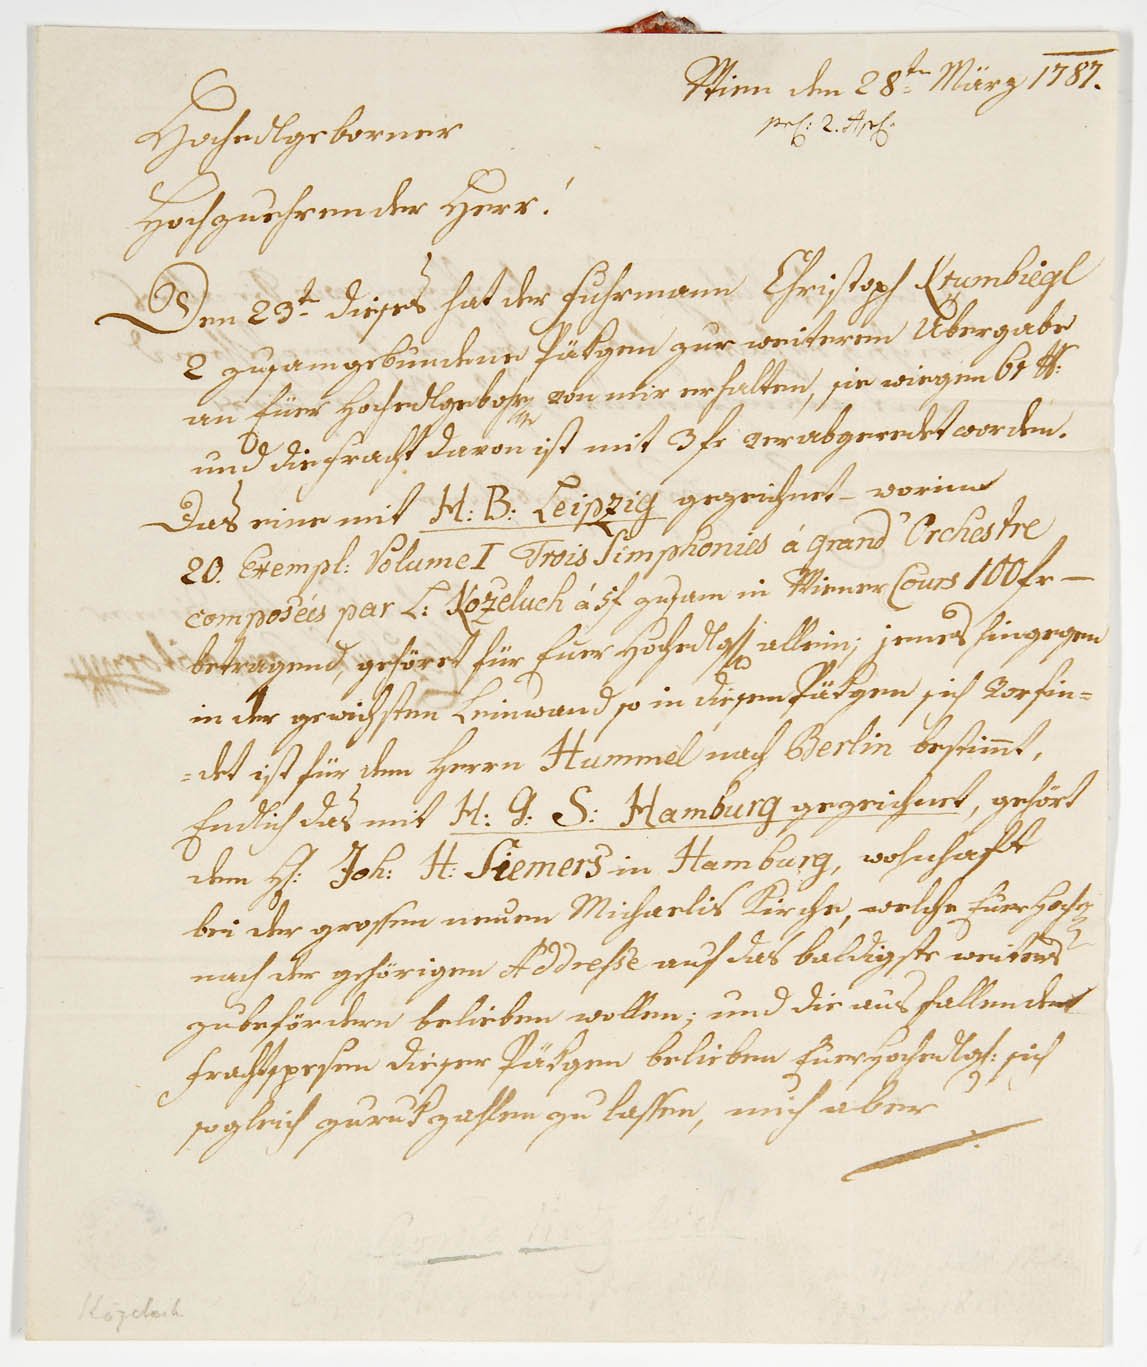 Wien den 28ten März 1787.
pr: 2. Apl.
Hochedlgeborner
Hochzuehrender Herr!
Den 23t dieses hat der Fuhrmann Christoph Krumbiegl
2 zusamgebundene Pätgen zur weiteren Übergabe
an Euer Hochedlgebohrn von mir erhalten, sie wiegen 61 ℔:
und die Fracht davon ist mit 3 fr verabgeredet worden.
Das eine mit H: B: Leipzig gezeichnet – worinn
20. Exempl: Volume I Trois Simphonies á grand Orchestre
composées par L: Kozeluch á 5f zusam in Wiener Cours 100 fr —
betragend, gehöret für Euer Hochedlgb allein; jenes hingegen
in der gewichsten Leinwand so in diesen Pätgen sich vorfin=
=det ist für den Herrn Hummel nach Berlin bestimmt,
Endlich das mit H: G: S: Hamburg gezeichnet, gehört
dem H: Joh: H: Siemers in Hamburg, wohnhaft
bei der grossen neuen Michaelis Kirche, welche Euer Hoch
nach der gehörigen Addresse auf das baldigste weiters
zubefördern belieben wollen; und die ausfallenden
Frachtspesen dieser Pätgen belieben Euer Hochedlgb: sich
sogleich zurukzahlen zu lassen, mich aber
Kozeluch